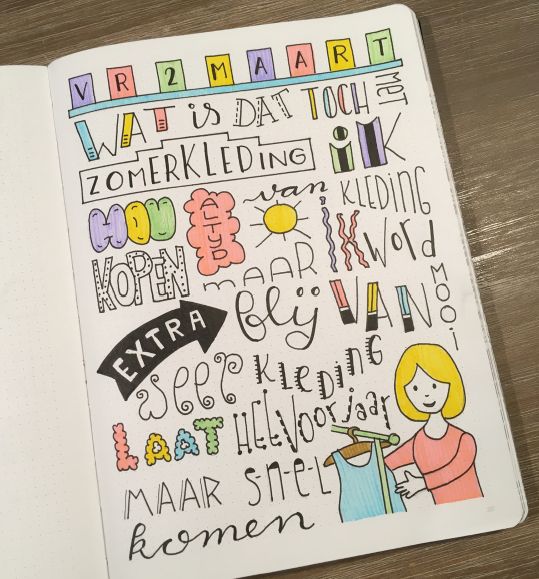 VR 2 MAART
WAT is DAT TOCH MET
ZOMERKLEDING iK
HOU ALTYD van KLEDING
KOPEN MAAR iK word
EXTRA blij VAN MOOi
weer KLEDiNG
LAAT HET Voorjaar
MAAR S-N-E-L
komen